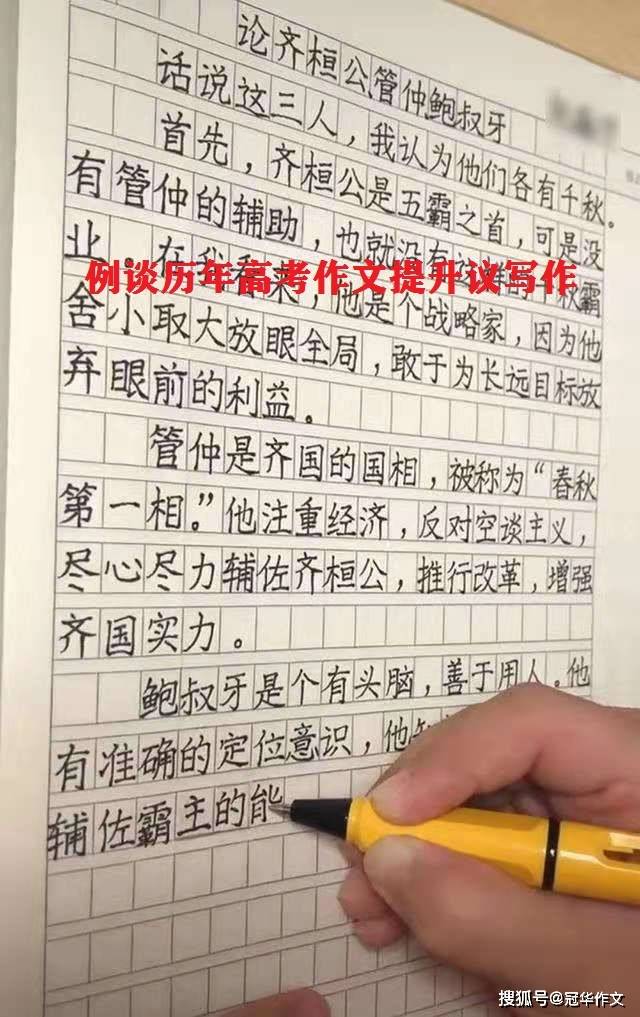 论齐桓公管仲鲍叔牙
话说这三人，我认为他们各有千秋。
首先，齐桓公是五霸之首，可是没
有管仲的辅助，也就没有
霸
例谈历年高考作文提升议写作
业。在我看来，他是个战略家，因为他
舍小取大放眼全局，敢于为长远目标放
弃眼前的利益。
管仲是齐国的国相，被称为“春秋
第一相。”他注重经济，反对空谈主义，
尽心尽力辅佐齐桓公，推行改革，增强
齐国实力。
鲍叔牙是个有头脑，善于用人。他
有准确的定位意识，他
辅佐霸主的能
搜狐号@冠华作文